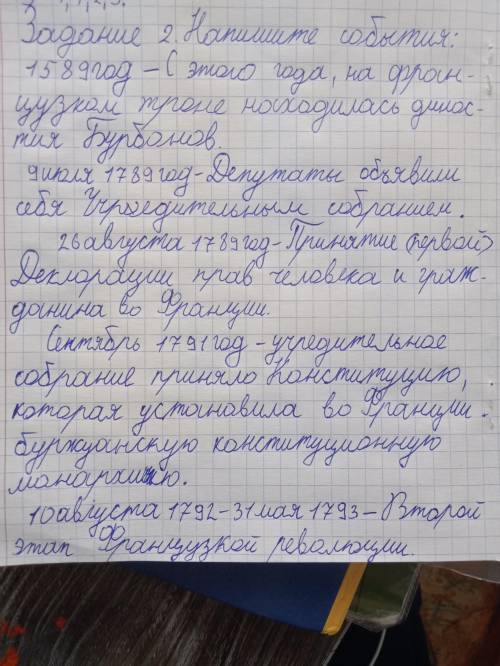 Задание 2. Напишите события:
1589год – С этого года, на фран-
цузком троне находилась динас-
тия Бурбонов.
9июля 1789год-Депутаты объявили
себя Учредительным собранием.
26августа 1789год-Принятие (первой)
Декларации прав человека и граж-
данина во Франции.
Сентябрь 1791год-учредительное
собрание приняло Конституцию,
которая установила во Франции.
буржуанскую конституционную
монархию.
10августа 1792-31мая 1793-Второй
этап Французкой революции.